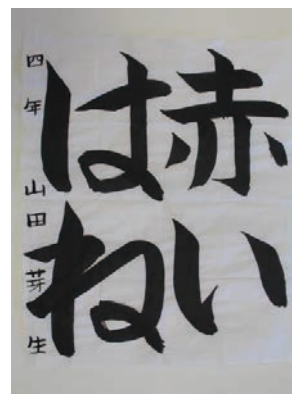 赤い
はね
四年 山田芽生